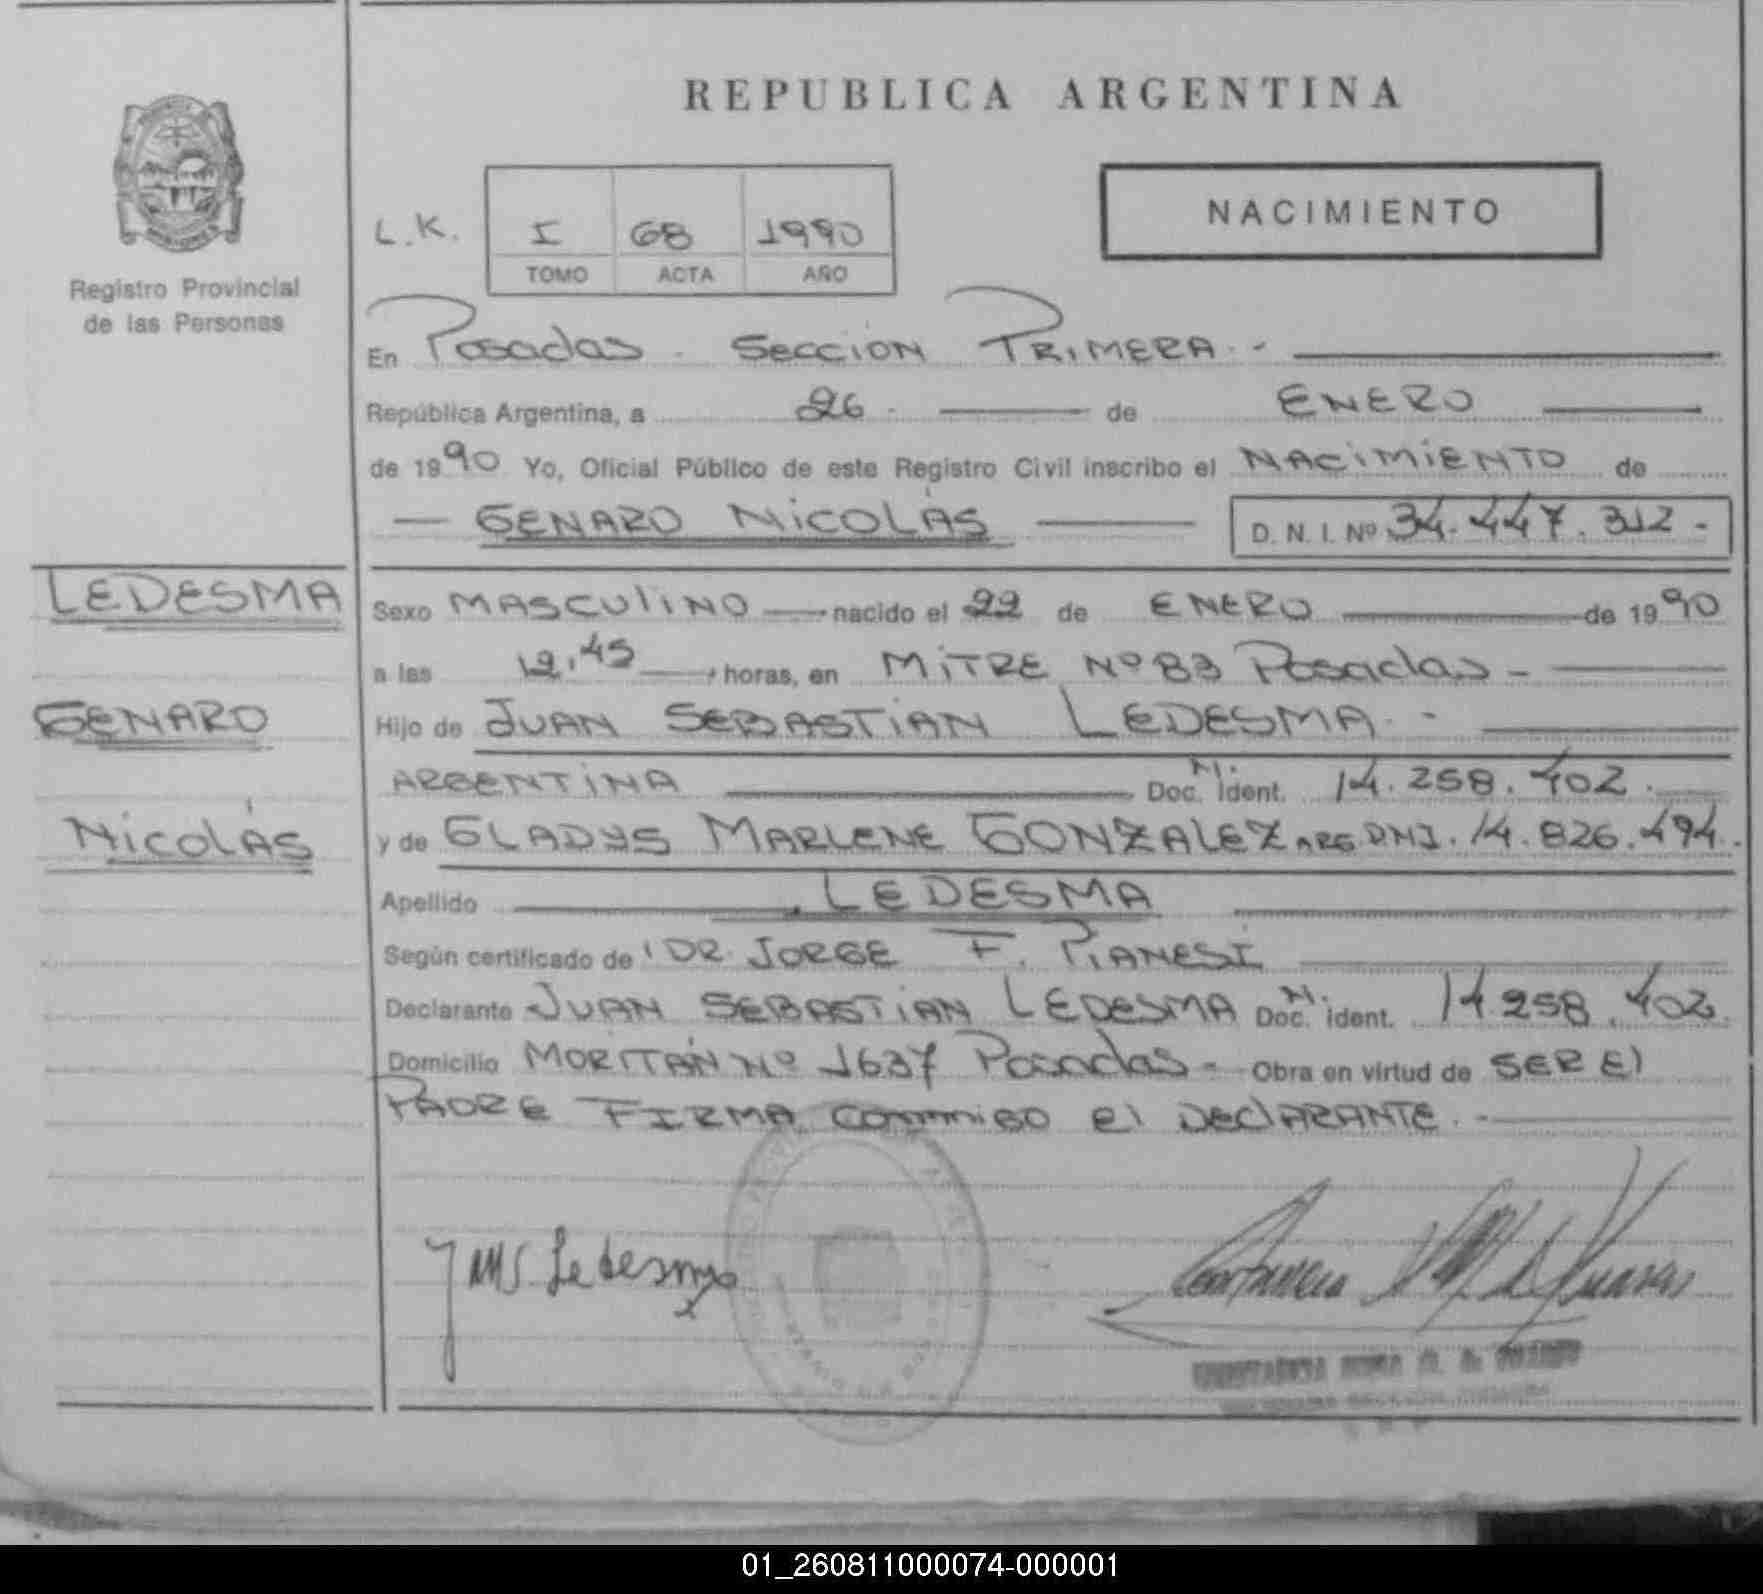 REPUBLICA ARGENTINA
NACIMIENTO
L.K. I 68 1990
TOMO ACTA AÑO
Registro Provincial
de las Personas
En Posadas - Seccion Primera.-
República Argentina, a 26 - de ENERO
de 1990 Yo, Oficial Público de este Registro Civil inscribo el NACIMIENTO de
— GENARO NICOLÁS — D. N. I. Nº 34.447.312-
LEDESMA
GENARO
NICOLÁS
Sexo MASCULINO — nacido el 22 de ENERO — de 1990
a las 12,45 — horas, en MITRE Nº 83 Posadas -
Hijo de JUAN SEBASTIAN LEDESMA. -
ARGENTINA Doc. M. Ident. 14.258.402.
y de GLADYS MARLENE GONZALEZ ARG DNI. 14.826.494.
Apellido LEDESMA
Según certificado de DR. JORGE F. PIANESI
Declarante JUAN SEBASTIAN LEDESMA Doc. M. ident. 14.258.402
Domicilio MORITÁN Nº 1637 Posadas - Obra en virtud de SER El
PADRE FIRMA conmigo el DEClARANTE. -
Ledesma
01_260811000074-000001